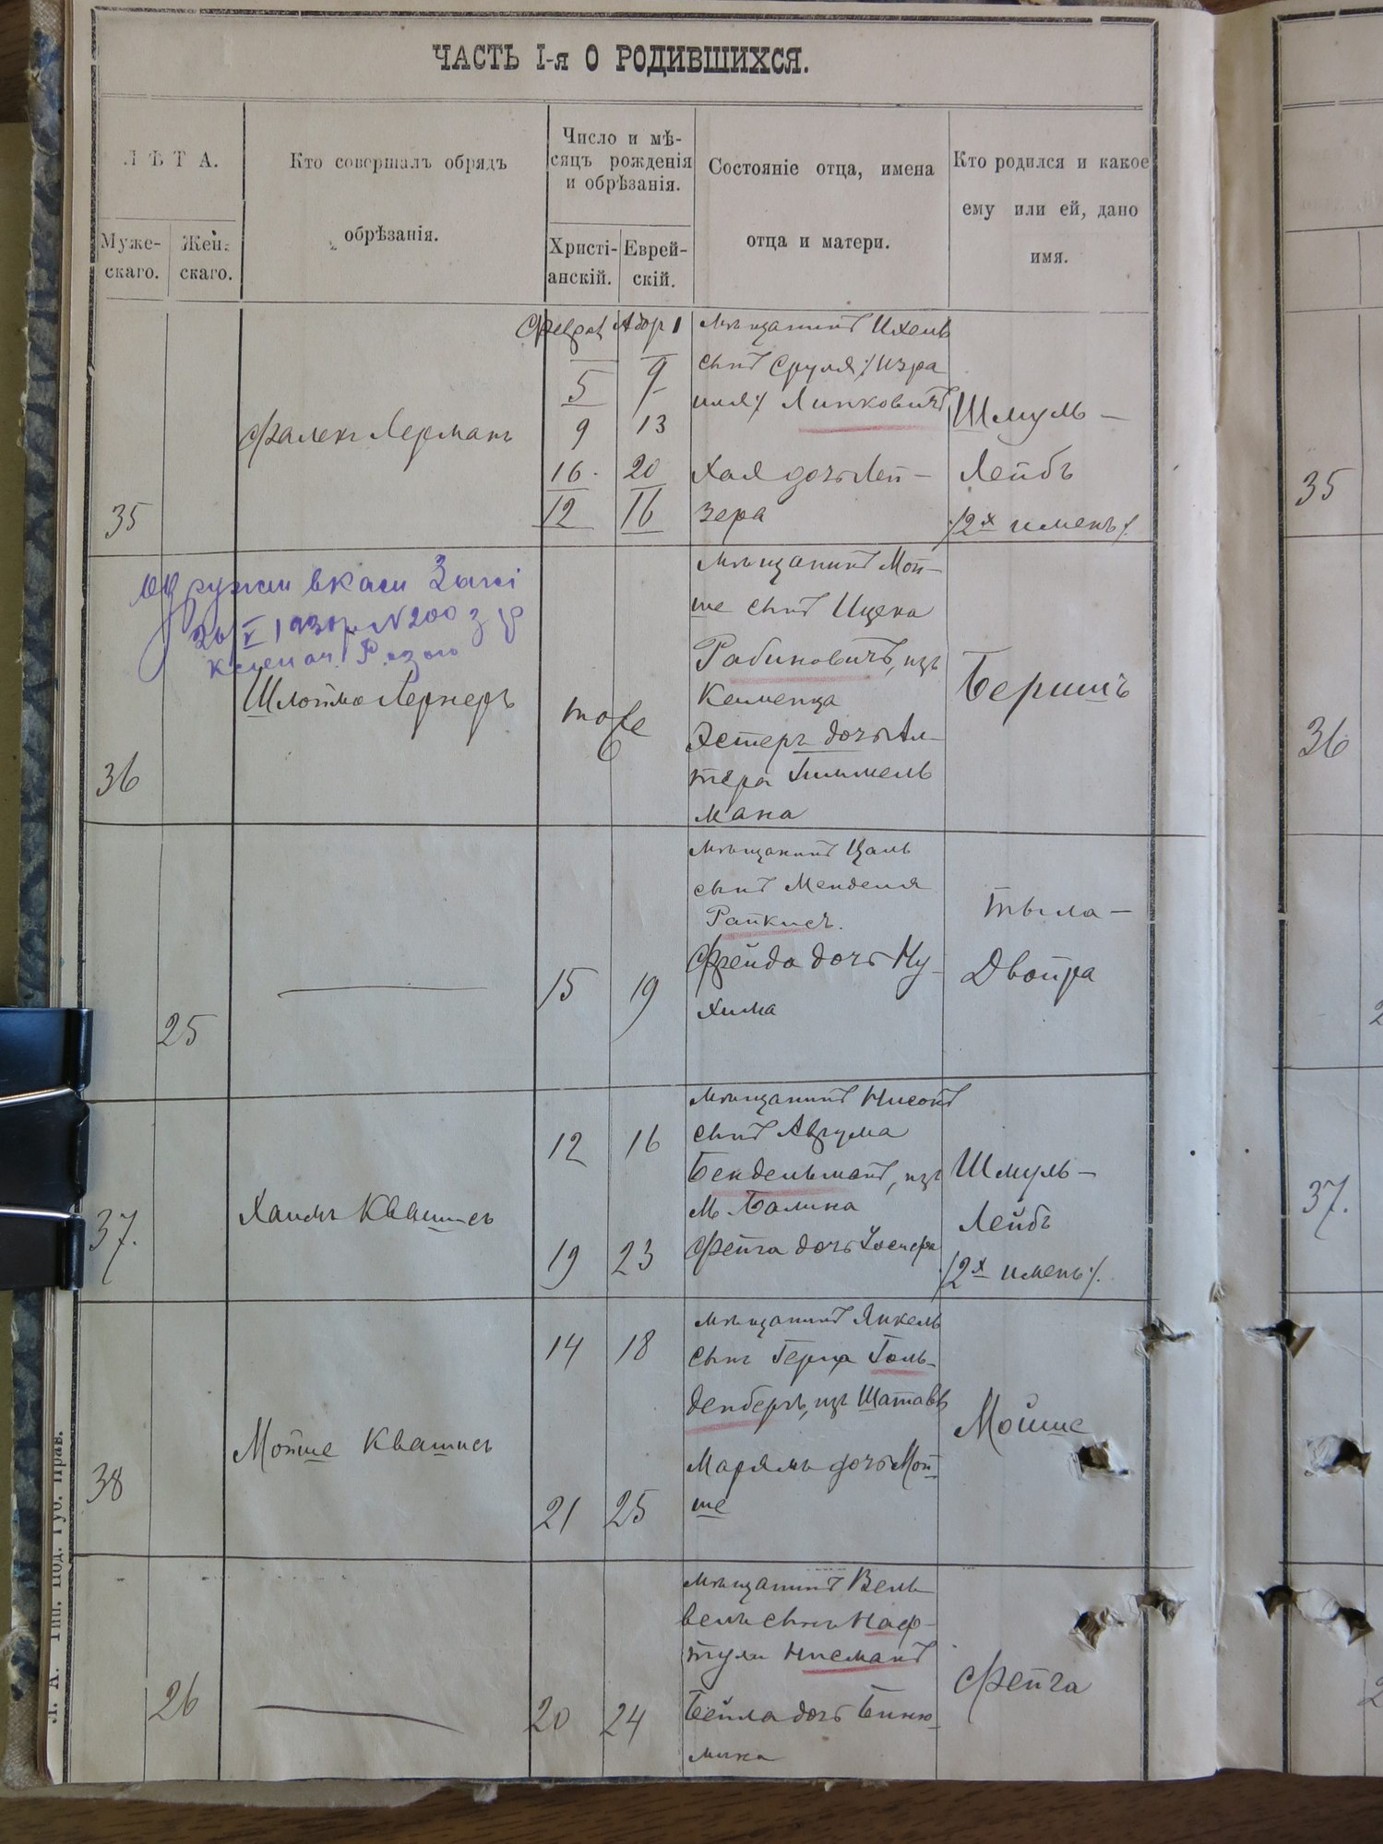 ЧАСТЬ I-я О РОДИВШИХСЯ.
Л Ѣ Т А.
Муже-
скаго.
Жен-
скаго.
Кто совершалъ обрядъ
обрѣзанія.
Число и мѣ-
сяцъ рожденія
и обрѣзанія.
Христі-
анскій.
Еврей-
скій.
Состояніе отца, имена
отца и матери.
Кто родился и какое
ему или ей, дано
имя.
35
Фалекъ Лерманъ
Феврал
5
9
16
12
Адоръ 1
9
13
20
16
Мѣщанинъ Ихель
сынъ Сруля /Изра
иля/ Липковичъ
Хая дочь Лей-
зера
Шмуль-
Лейбъ
/2х именъ/.
36
Шлойма Лернеръ
тоже
Мѣщанинъ Мой-
ше сынъ Ицека
Рабиновичъ, изъ
Каменца
Эстеръ дочь Ал-
тера Гиммель
мана
Беришъ
25
15
19
Мѣщанинъ Цаль
сынъ Менделя
Рапкисъ.
Фрейда дочь Ну-
хима
Тыла-
Двойра
37.
Хаимъ Квашисъ
12
19
16
23
Мѣщанинъ Нисонъ
сынъ Аврума
Бендельманъ, изъ
М. Балина
Фейга дочь
Шмуль-
Лейбъ
/2х именъ/.
38
Мойше Квашисъ
14
21
18
25
Мѣщанинъ Янкель
сынъ Герца Голь-
денберъ, изъ Шатавъ
Марямъ дочь Мой-
ше
Мойше
26
20
24
Мѣщанинъ Вель-
вель сынъ Наф-
тули Нисманъ
Бейла дочь Биню-
мина
Фейга
Л. А. Тип. Под. Губ. Прав.
35
36
37.